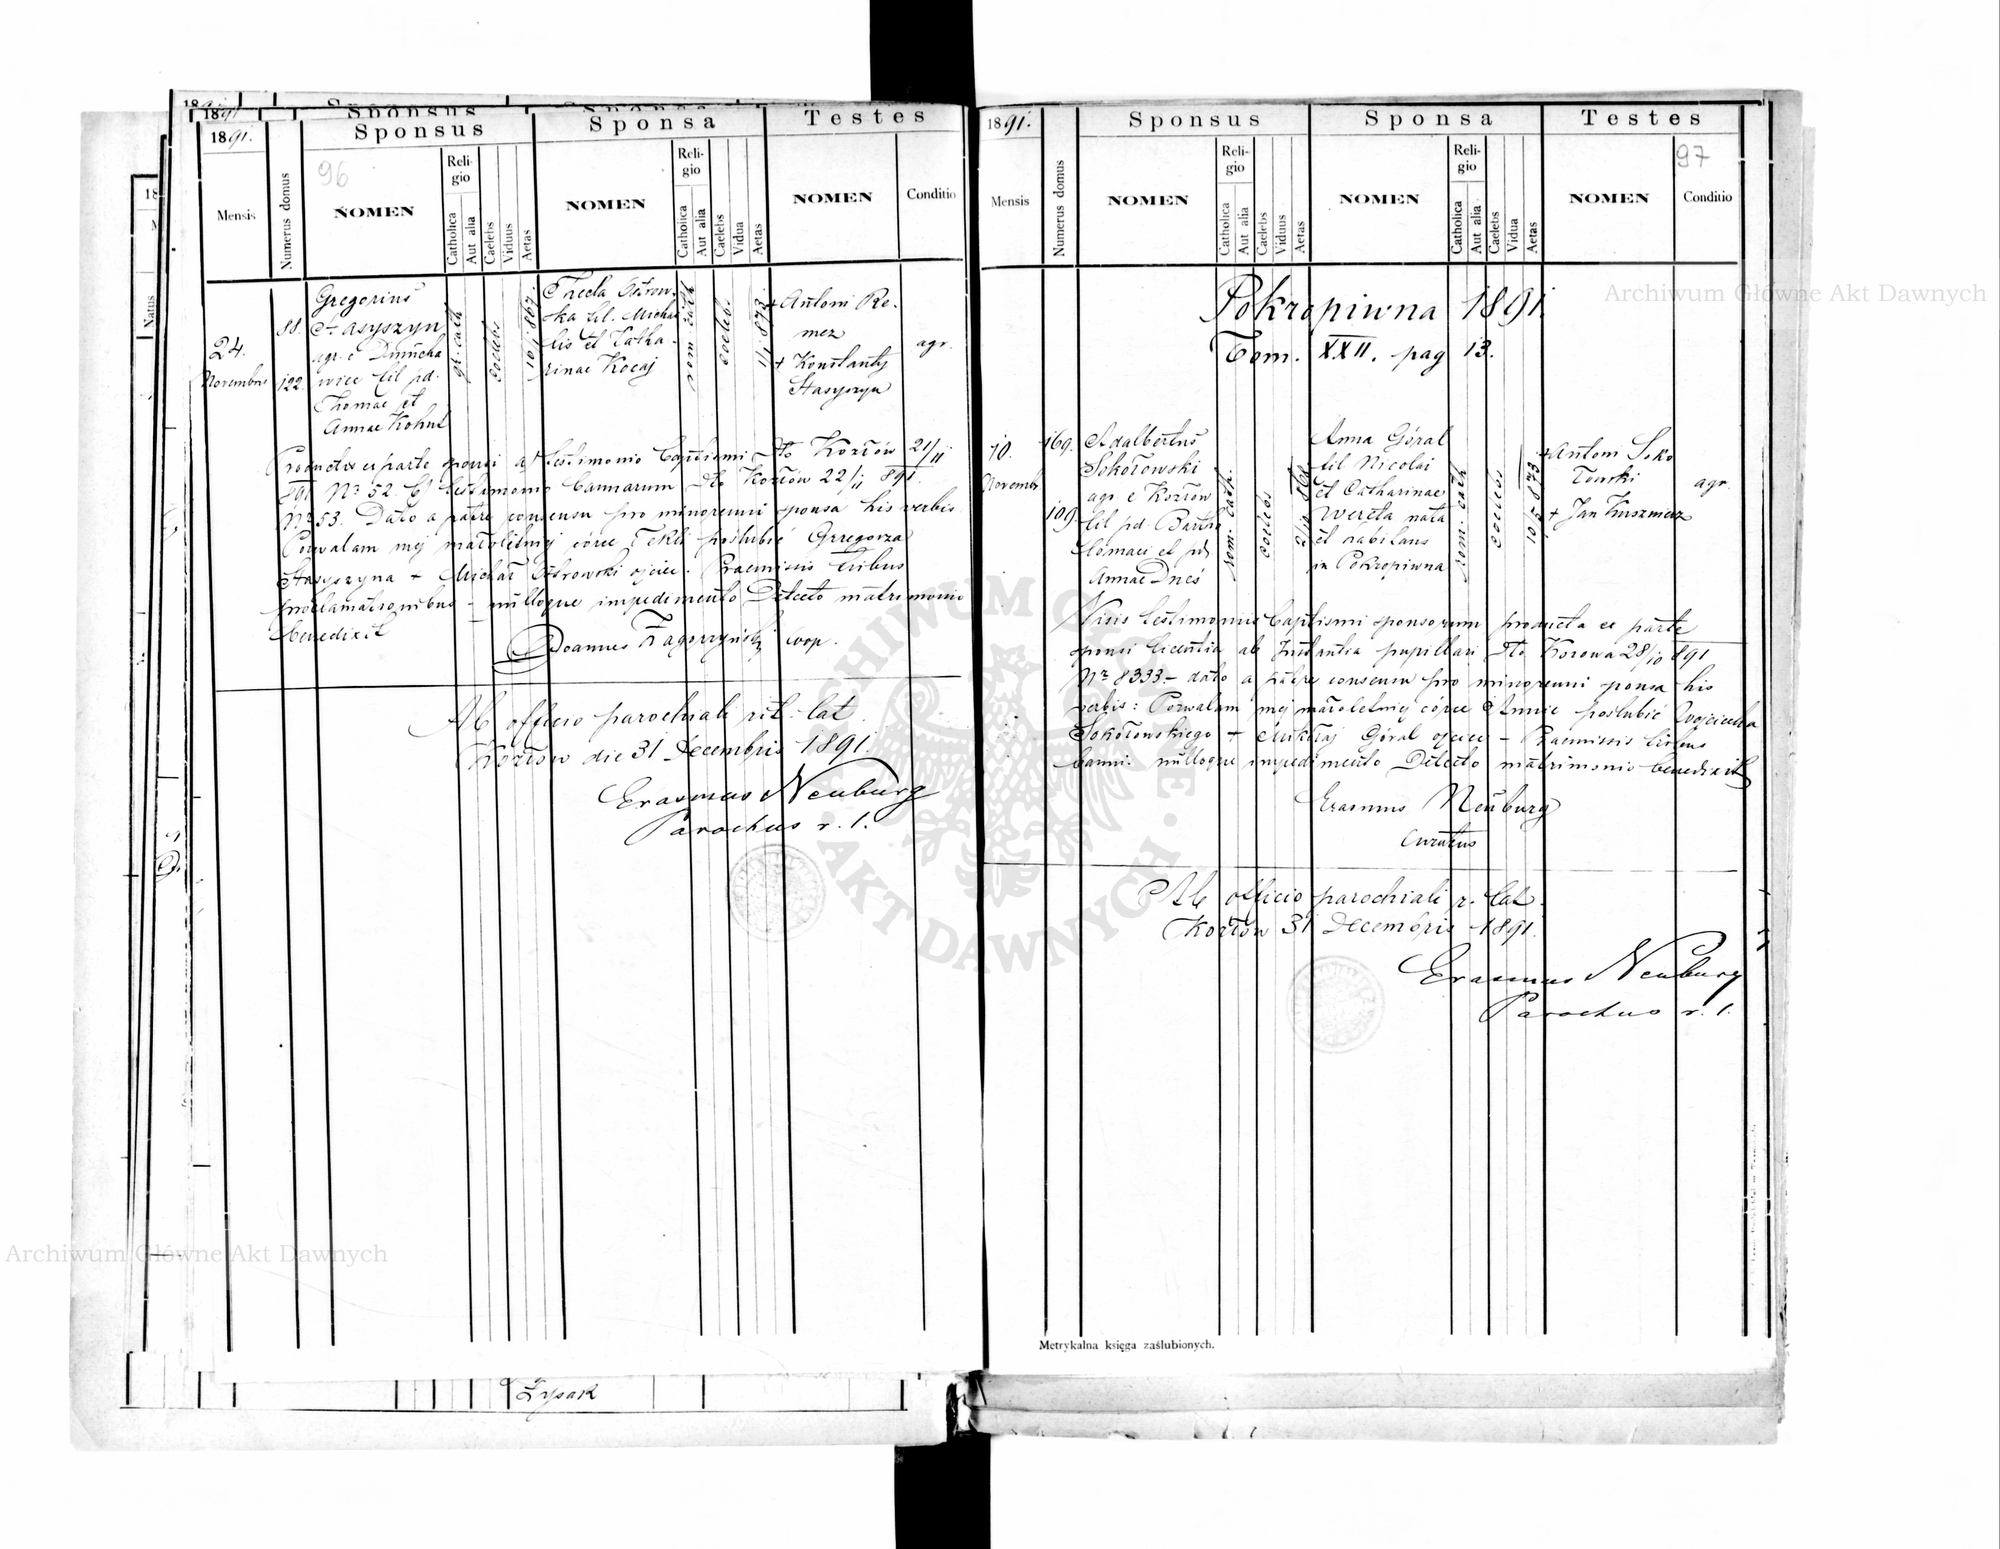 1891.
Sponsus
Sponsa
Testes
96
Mensis
Numerus domus
NOMEN
Religio
Catholica
Aut alia
Caelebs
Viduus
Aetas
NOMEN
Religio
Catholica
Aut alia
Caelebs
Vidua
Aetas
NOMEN
Conditio
24.
Novembris
88.
122
Gregorius
Stasyszyn
agr. e Dmucha
wiec fil pd.
Thomae et
Annae Kohut
gr. cath
coelebs
10/1 867.
Thecla Ostrow
ska fil. Micha
lis et Catha
rinae Kocaj
rom. cath
coeleb.
1/1 873.
+ Antoni Re-
mez
+ Konstanty
Stasyszyn
agr.
Productis ex parte sponsi a) testimonio baptismi dto Kozłów 21/11
891 Nr 52. b) testimonio bannorum dto Kozłów 22/11 891.
Nr 53. Dato a patre consensu pro minorenni sponsa his verbis
Pozwalam mej małoletniej córce Tekli poślubić Grzegorza
Stasyszyna + Michał Ostrowski ojciec. Praemissis tribus
proclamationibus - nulloque impedimento detecto matrimonio
benedixit
Joannes Zagorzyński coop.
Ab officio parochiali rit. lat.
Kozłów die 31 Decembris 1891.
Erasmus Neuburg
Parochus r. l.
Łysak
1891.
Sponsus
Sponsa
Testes
97
Mensis
Numerus domus
NOMEN
Religio
Catholica
Aut alia
Caelebs
Viduus
Aetas
NOMEN
Religio
Catholica
Aut alia
Caelebs
Vidua
Aetas
NOMEN
Conditio
Pokropiwna 1891.
Tom. XXII. pag 13.
10.
Novembr
169.
109.
Adalbertus
Sokołowski
agr. e Kozłów
fil pd. Barto
lomaei et pd
Annae Dnes
rom. cath.
coelebs
2/10 868
Anna Góral
fil Nicolai
et Catharinae
Wereta nata
et habitans
in Pokropiwna
rom. cath
coelebs
10/5 873
+ Antoni Soko
łowski
+ Jan Kuszmerz
agr.
Visis testimoniis baptismi sponsorum producta ex parte
sponsi licentia ab Instantia pupillari dto Kozowa 28/10 891
Nr 8333 - dato a patre consensu pro minorenni sponsa his
verbis: Pozwalam mej małoletniej córce Annie poślubić Wojciecha
Sokołowskiego + Mikołaj Góral ojciec - Praemissis tribus
bannis nulloque impedimento detecto matrimonio benedixit
Erasmus Neuburg
curatus
Ab officio parochiali r. lat.
Kozłów 31 Decembris 1891.
Erasmus Neuburg
Parochus r. l.
Metrykalna księga zaślubionych.
Archiwum Główne Akt Dawnych
Archiwum Główne Akt Dawnych
ARCHIWUM GŁÓWNE AKT DAWNYCH